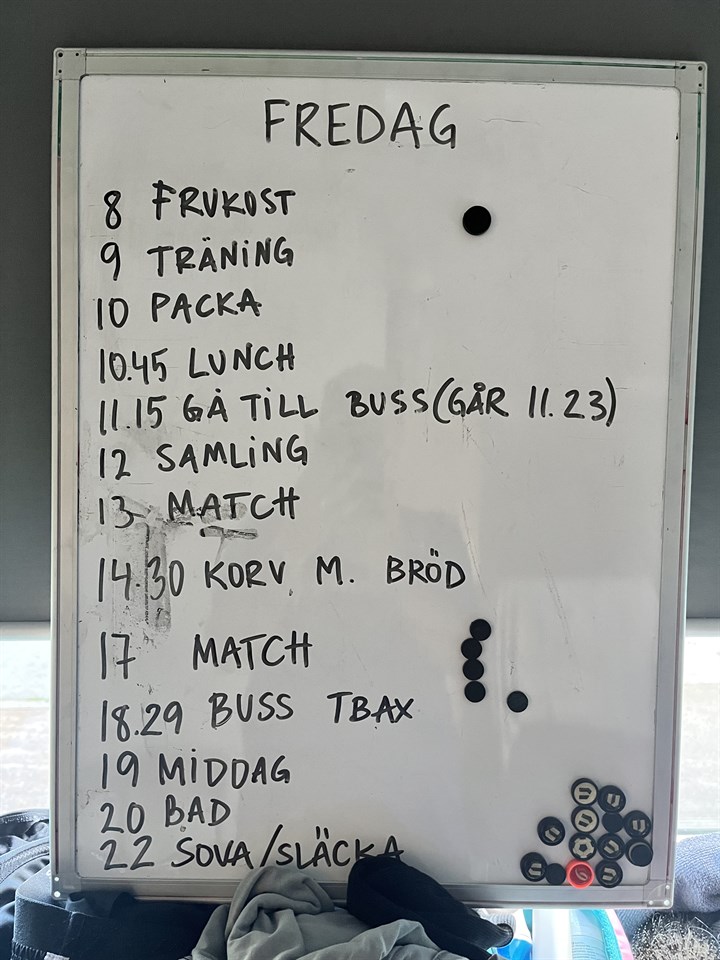 FREDAG
8 FRUKOST
9 TRÄNING
10 PACKA
10.45 LUNCH
11.15 GÅ TILL BUSS (GÅR 11.23)
12 SAMLING
13 MATCH
14.30 KORV M. BRÖD
17 MATCH
18.29 BUSS TBAX
19 MIDDAG
20 BAD
22 SOVA/SLÄCKA